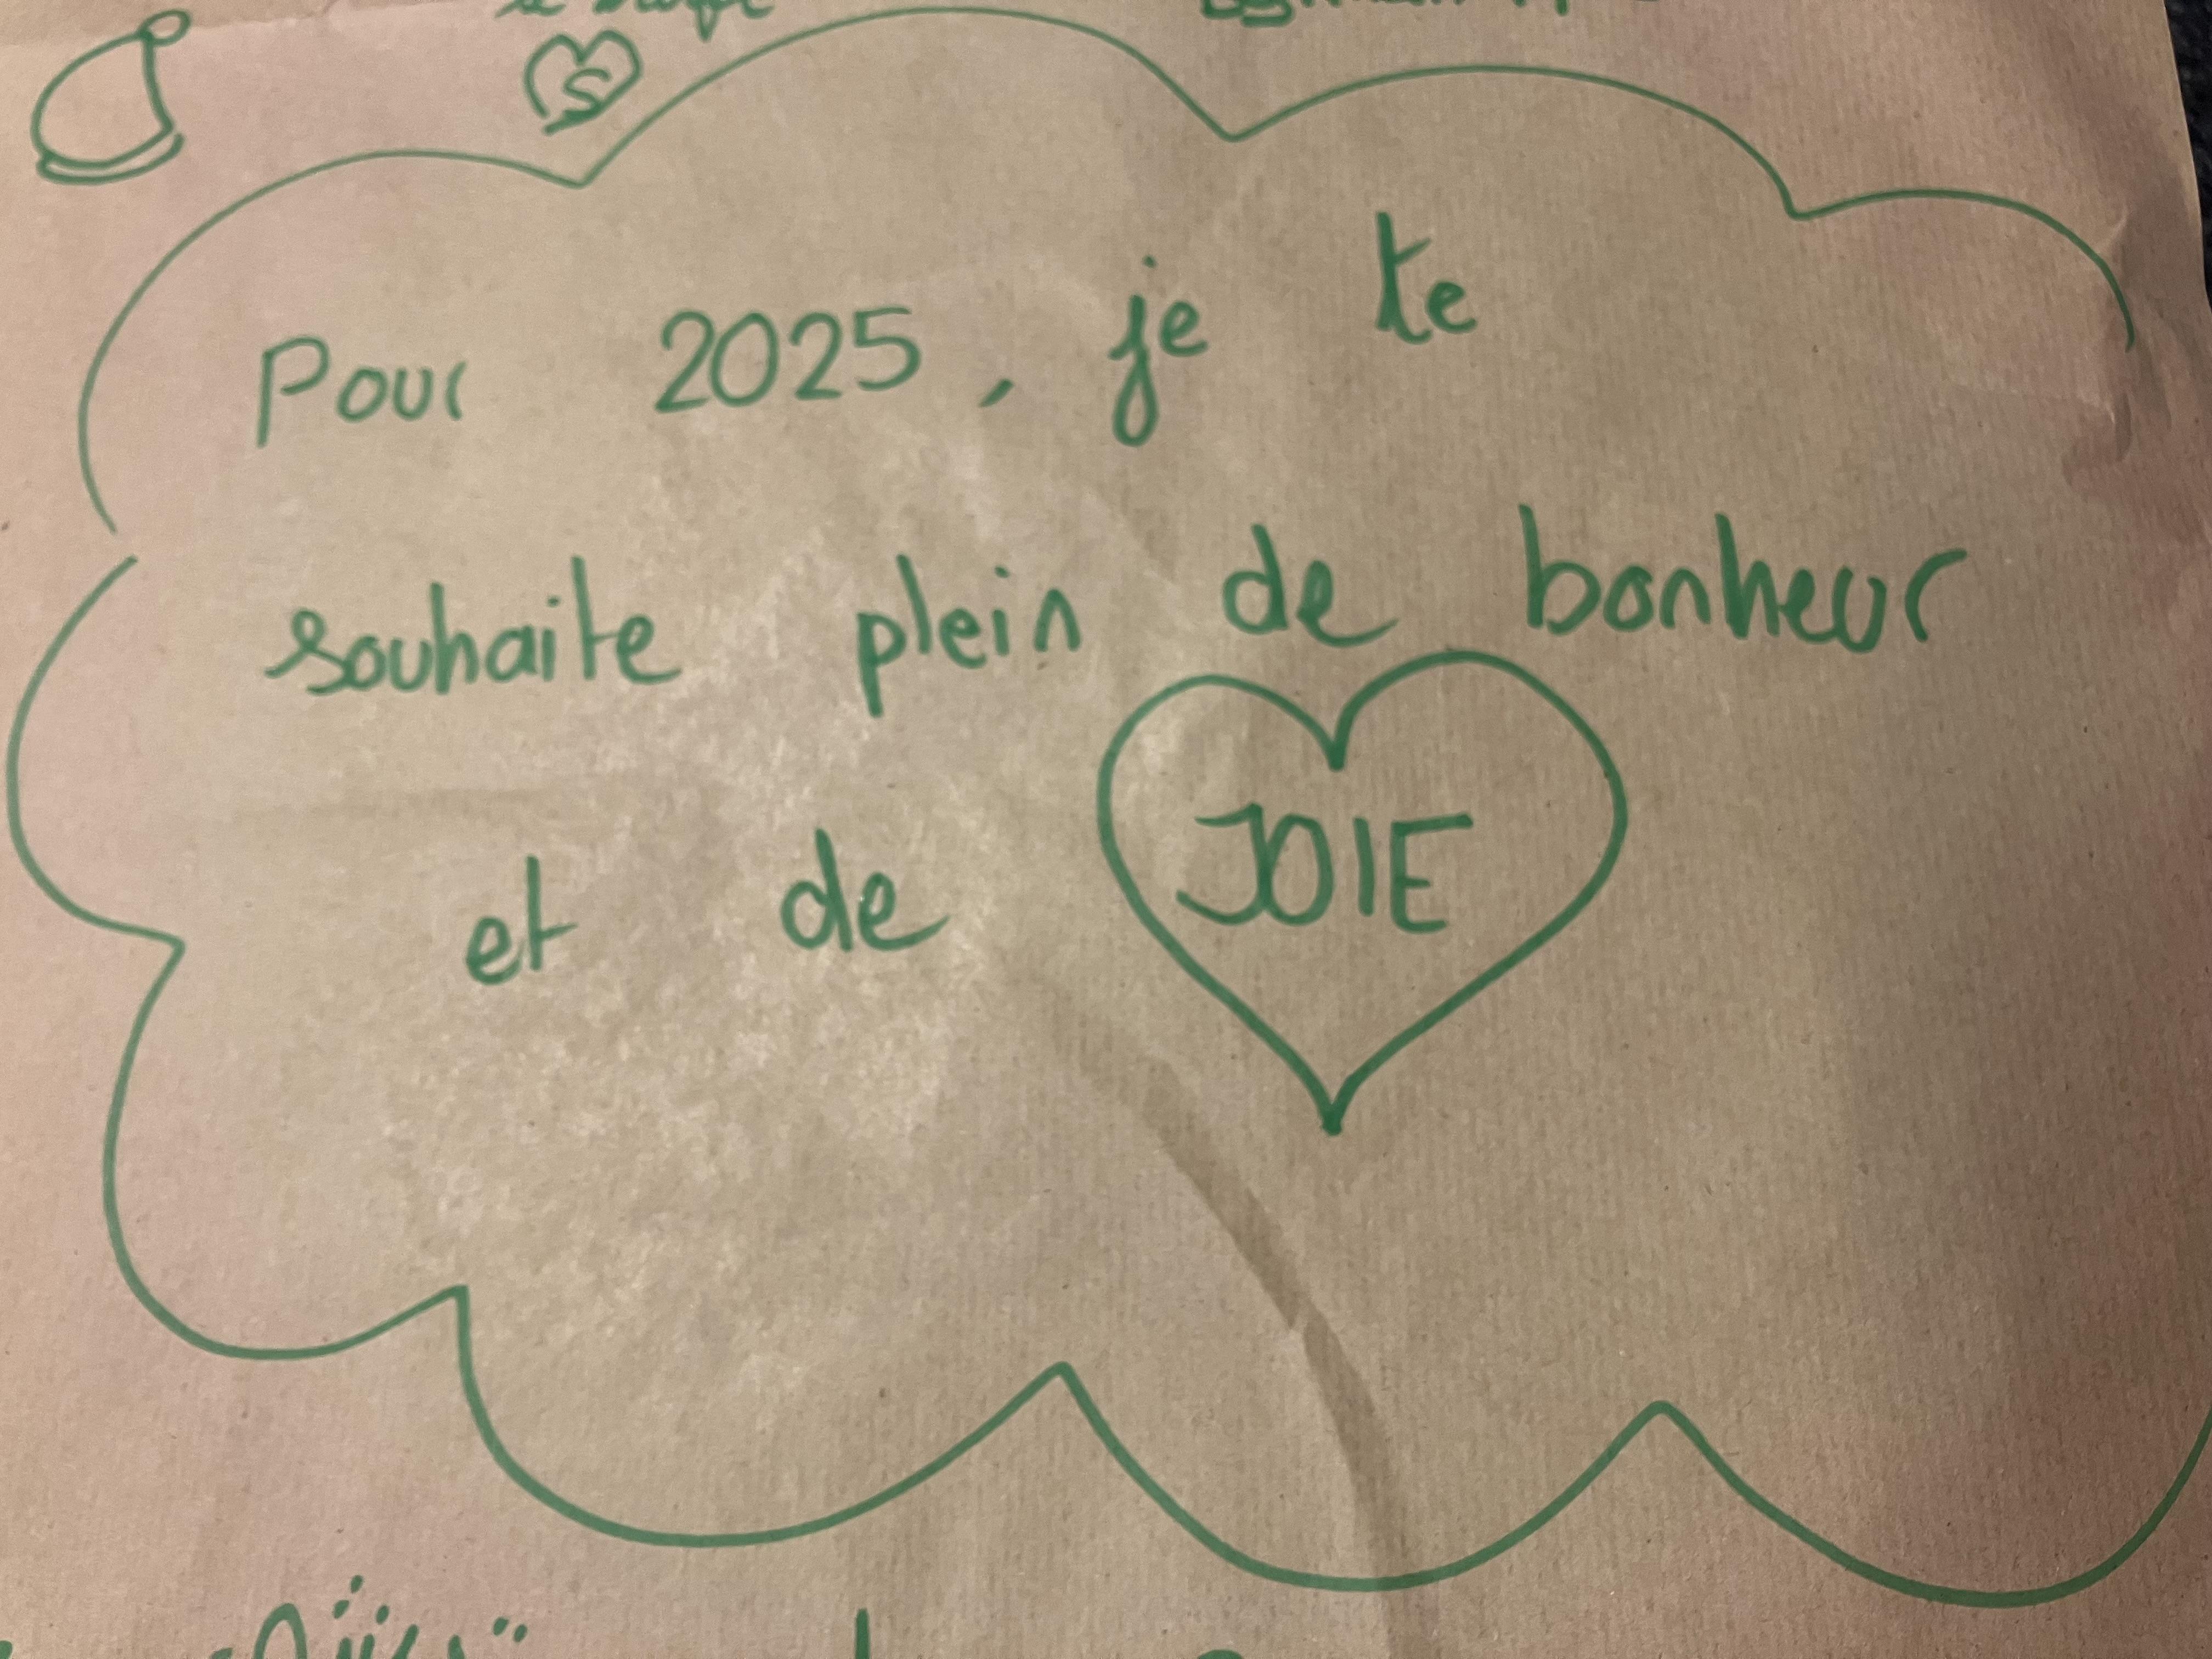 S
Pour 2025, je te
souhaite plein de bonheur
et de JOIE